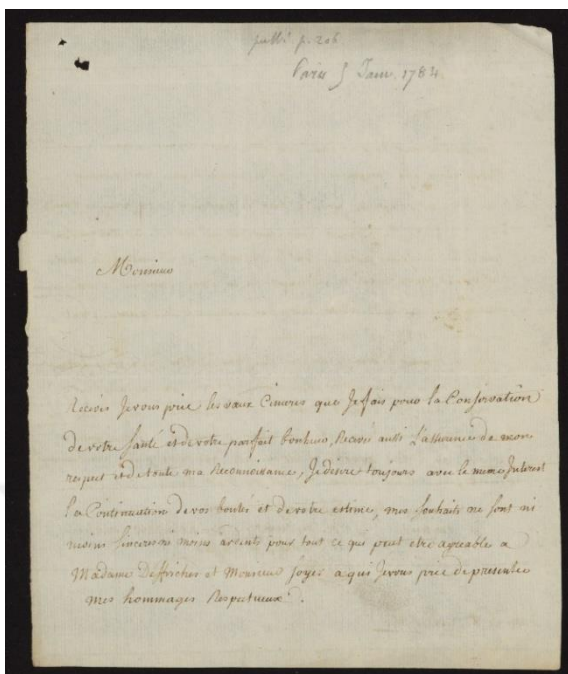 publié p. 206
Paris 5 Janv. 1784
Monsieur
Recevés Jevous prie les vœux Cinceres que Jefais pour la Conservation
devotre Santé et devotre parfait bonheur, Recevés aussi L'assurance de mon
respect et de toute ma Reconnoissance, Jedésire toujours avec le meme Interest
la Continuation de vos bontés et devotre estime, mes Souhaits ne Sont ni
moins Sinceres ni moins ardents pour tout ce qui peut etre agréable a
Madame Desfriches et Monsieur
a qui Jevous prie de presenter
mes hommages Respectueux.